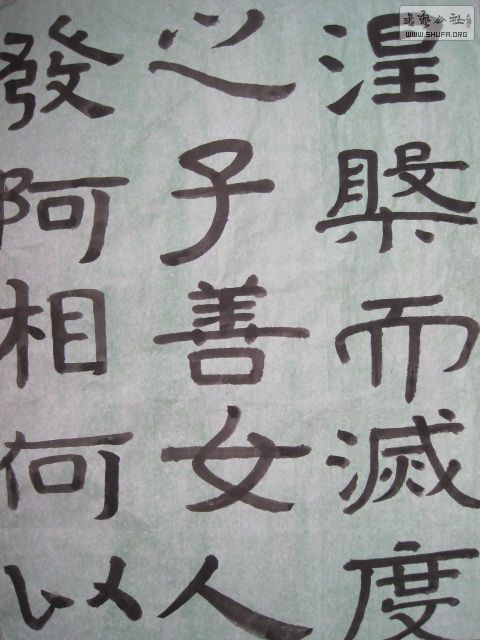 涅槃而滅度
之子善女人
發阿相何以
书艺公社
WWW.SHUFA.ORG